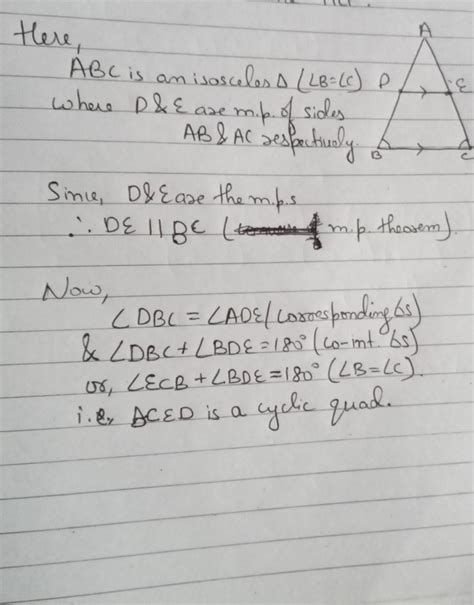 Here,
A
ABC is an isosceles Δ (∠B=∠C) D E
where D & E are m.p. of sides
AB & AC respectively.
B C
Since, D & E are the m.p.s
∴ DE || BC ( m.p. theorem).
Now,
∠DBC = ∠ADE (Corresponding ∠s)
& ∠DBC + ∠BDE = 180° (co-int. ∠s)
or, ∠ECB + ∠BDE = 180° (∠B=∠C).
i.e, BCED is a cyclic quad.